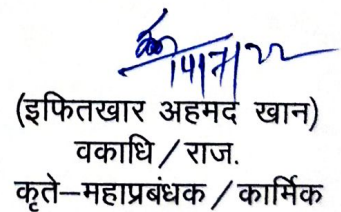 14/7/22
(इफितखार अहमद खान)
वकाधि / राज.
कृते–महाप्रबंधक / कार्मिक